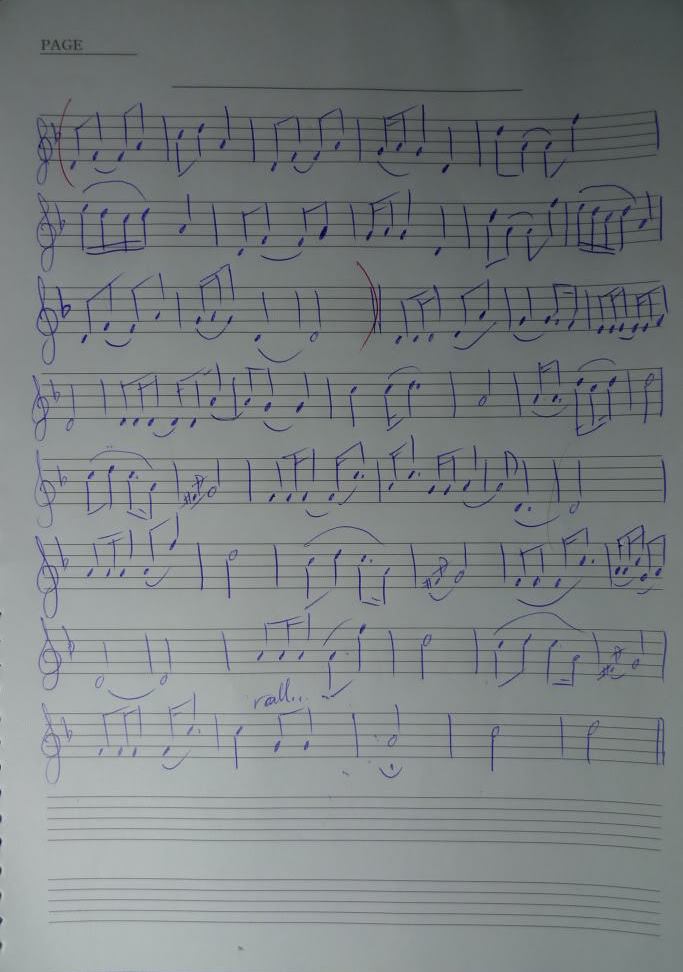 PAGE
rall..